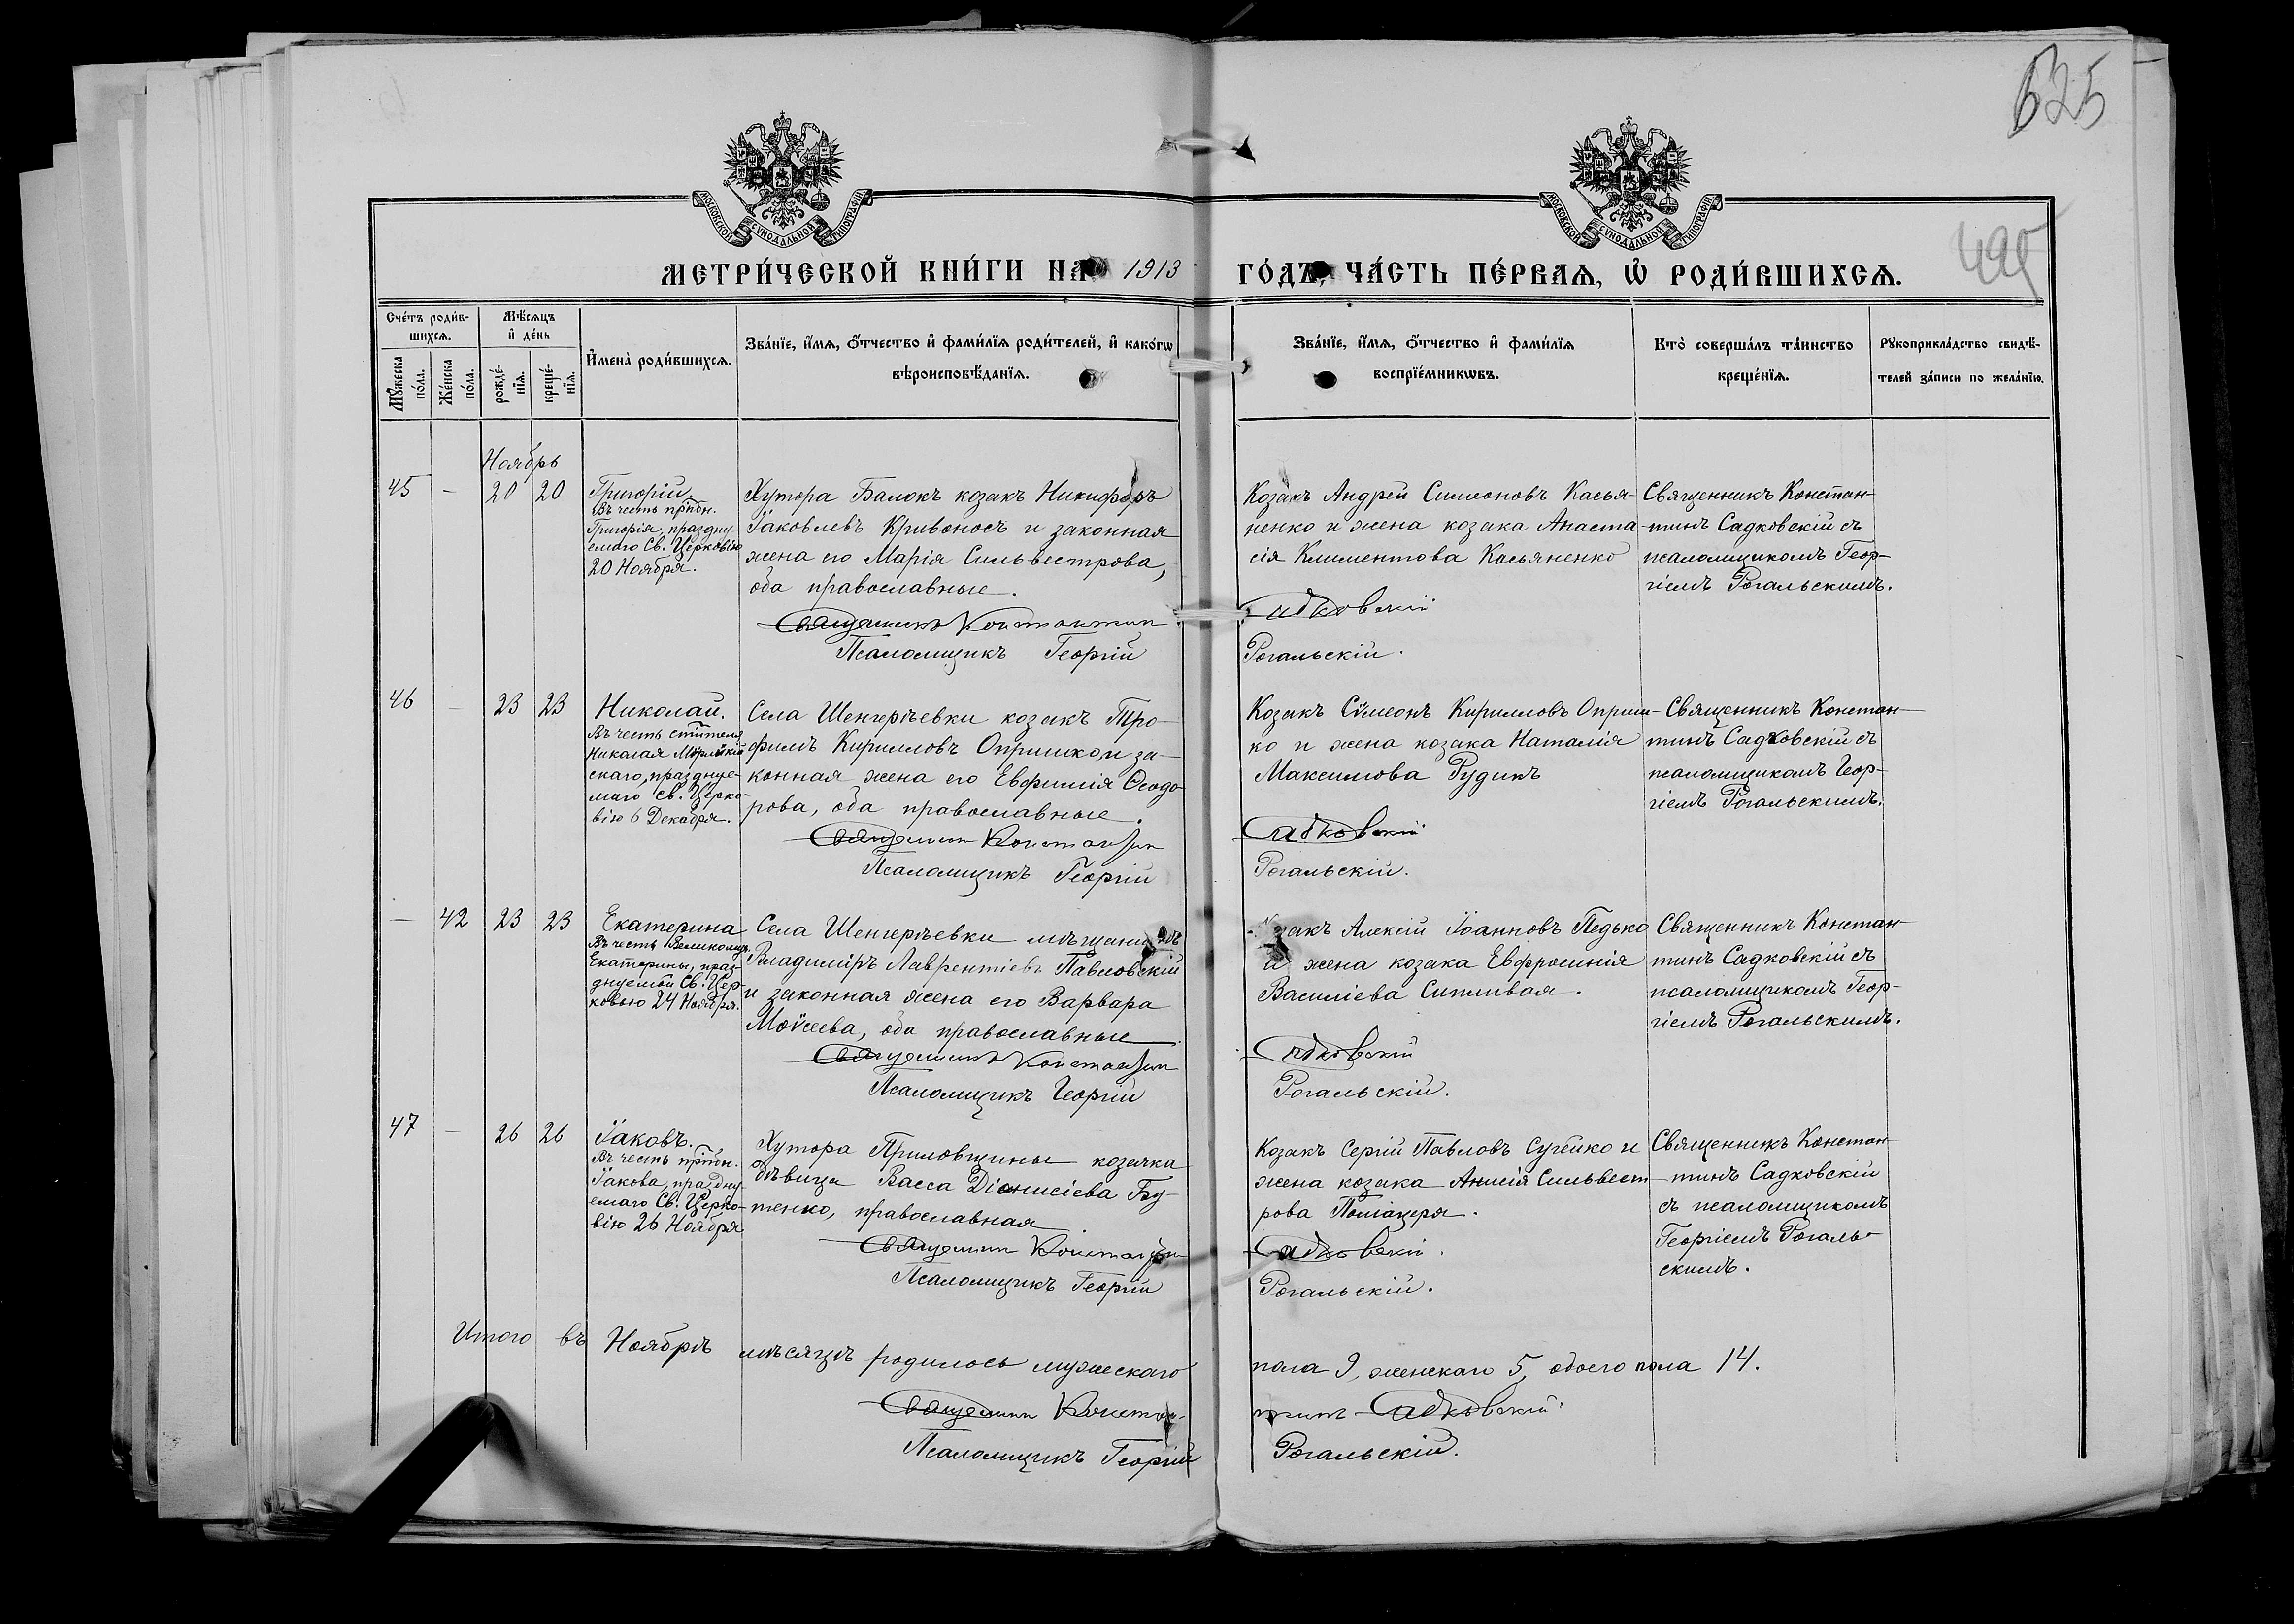 625
495
МОСКОВСКОЙ СѴНОДАЛЬНОЙ ТИПОГРАФІИ
МОСКОВСКОЙ СѴНОДАЛЬНОЙ ТИПОГРАФІИ
МЕТРИ́ЧЕСКОЙ КНИ́ГИ НА 1913 ГО́ДЪ, ЧА́СТЬ ПЕ́РВАЯ, Ѡ РОДИ́ВШИХСЯ.
Сче́тъ роди́в-
шихся.
Мꙋ́жеска
по́ла.
Же́нска
по́ла.
Мѣ́сяцъ
и де́нь
рожде́-
нїя.
креще́-
нїя.
И҆мена̀ роди́вшихся.
Зва́нїе, и҆́мя, ѻ҆́тчество и҆ фами́лїя роди́телей, и҆ како́гѡ
вѣроисповѣ́данїя.
Зва́нїе, и҆́мя, ѻ҆́тчество и҆ фами́лїя
воспрїе́мникѡвъ.
Кто̀ соверша́лъ та́инство
креще́нїя.
Рꙋкоприкла́дство свидѣ́-
телей за́писи по жела́нїю.
Ноябрь
45 - 20 20
Григорій
Въ честь препдн.
Григорія, праздну
емаго Св. Церковію
20 Ноября.
Хутора Балокъ козакъ Никифоръ
Іаковлевъ Кривоносъ и законная
жена его Марія Сильвестрова,
оба православные.
Священникъ Константин
Псаломщикъ Георгій
Козакъ Андрей Симеоновъ Касья-
ненко и жена козака Анаста-
сія Климентова Касьяненко
Садковскій
Рогальскій.
Священникъ Констан-
тинъ Садковскій съ
псаломщикомъ Геор-
гіемъ Рогальскимъ.
46 - 23 23
Николай.
Въ честь стителя
Николая Мѵрликій
скаго, праздвуе-
маго Св. Церко-
вію 6 Декабря.
Села Шенгерѣевки козакъ Тро-
фимъ Кирилловъ Опришко, и за-
конная жена его Евфимія Ѳеодо
рова, оба православные.
Священник Константин
Псаломщикъ Георгій
Козакъ Сѵмеонъ Кирилловъ Оприш-
ко и жена козака Наталія
Максимова Рудикъ
Садковскій
Рогальскій.
Священникъ Констан-
тинъ Садковскій съ
псаломщикомъ Геор-
гіемъ Рогальскимъ.
- 42 23 23
Екатерина
Въ честь Великомуч.
Екатерины, праз-
днуемой Св. Цер-
ковью 24 Ноября.
Села Шенгерѣевки мѣщанинъ
Владиміръ Лаврентіевъ Павловскій
и законная жена его Варвара
Моѵсеева, оба православные
Священникъ Константин
Псаломщикъ Георгій
Козакъ Алексій Іоанновъ Педько
и жена козака Евфросинія
Василіева Сипливая.
Садковскій
Рогальскій.
Священникъ Констан-
тинъ Садковскій съ
псаломщикомъ Геор-
гіемъ Рогальскимъ.
47 - 26 26
Іаковъ.
Въ честь препдн.
Іакова, праздну-
емаго Св. Церко-
вію 26 Ноября
Хутора Приловщины козачка
дѣвица Васса Діонисіева Гу-
тенко, православная
Священник Константин
Псаломщикъ Георгій
Козакъ Сергій Павловъ Сугейко и
жена козака Анисія Сильвест-
рова
Садковскій
Рогальскій.
Священникъ Констан-
тинъ Садковскій
съ псаломщикомъ
Георгіемъ Рогаль-
скимъ.
Итого въ Ноябрѣ мѣсяцѣ родилось мужескаго пола 9, женскаго 5, обоего пола 14.
Священник Констан-тинъ Садковскій
Псаломщикъ Георгій Рогальскій.